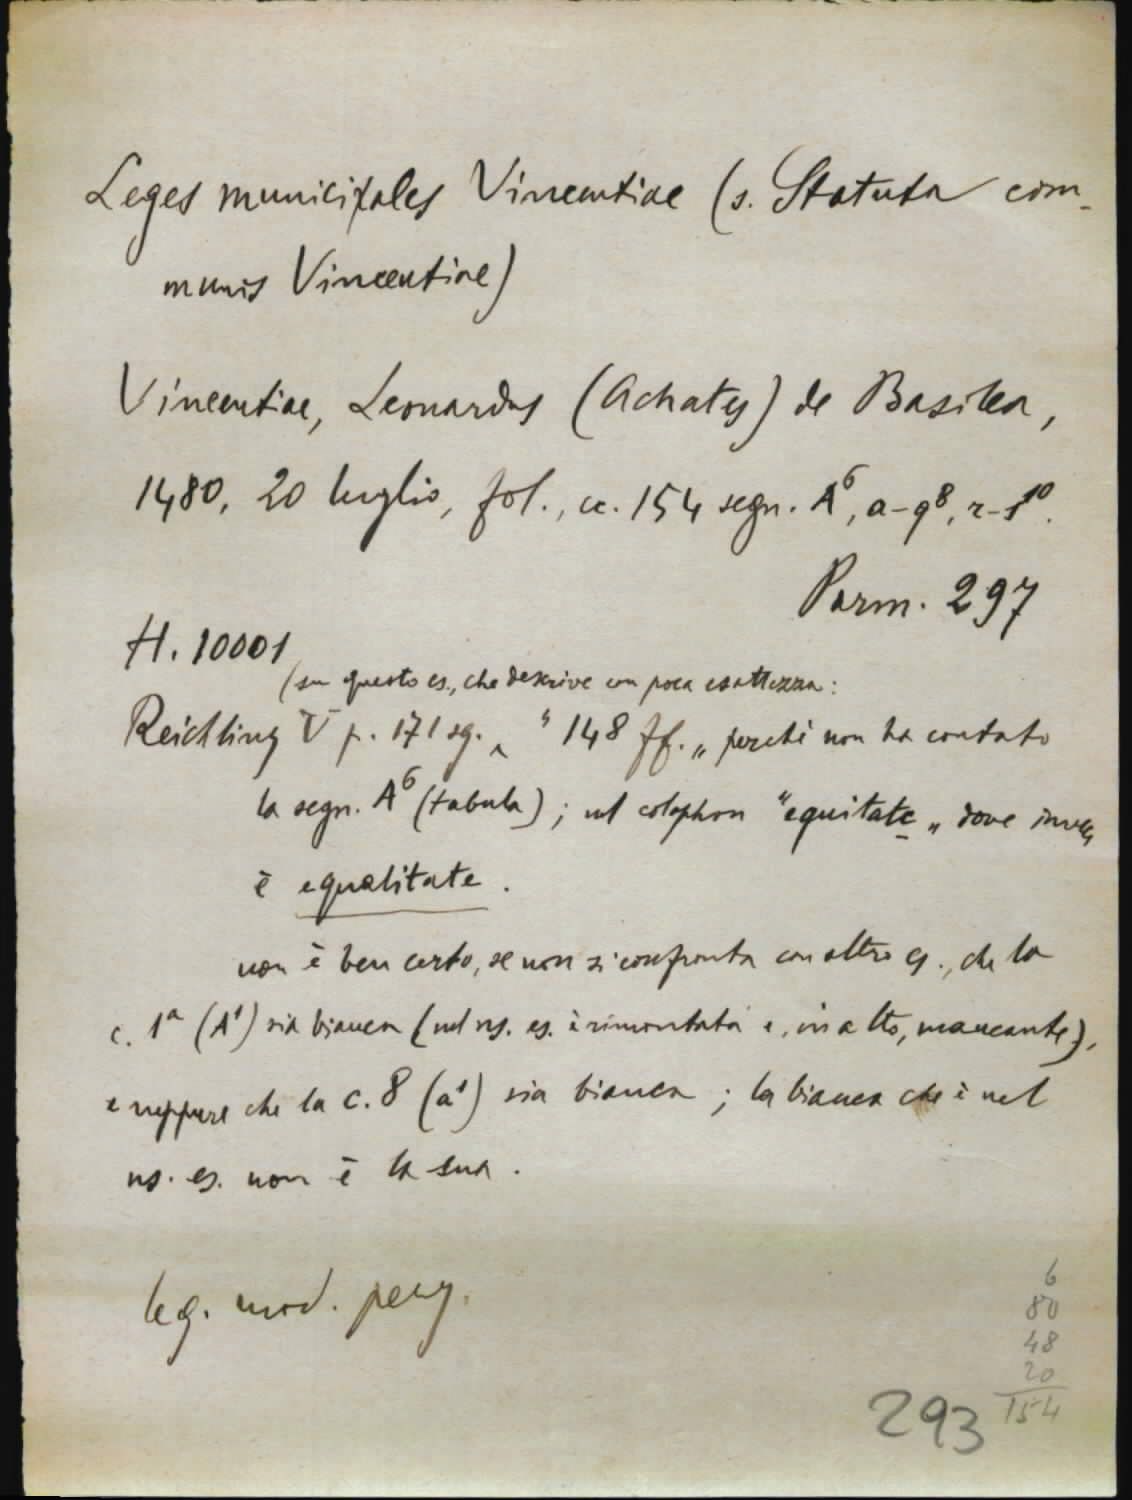 Leges municipales Vincentiae (s. Statuta com-
munis Vincentiae)
Vincentiae, Leonardus (Achates) de Basilea,
1480, 20 luglio, fol., cc. 154 segn. A⁶, a-q⁸, r-s¹⁰.
Parm. 297
H. 10001
(su questo es., che descrive con poca esattezza:
Reichling V p. 171 sg. ‸ "148 ff.„ perchè non ha contato
la segn. A⁶ (tabula); nel colophon "equitate„ dove invece
è equalitate.
non è ben certo, se non si confronta con altro es., che la
c. 1ª (A¹) sia bianca (nel ns. es. è rimontata e, in alto, mancante),
e neppure che la c. 8 (a¹) sia bianca; la bianca che è nel
ns. es. non è la sua.
leg. mod. perg.
6
80
48
20
154
293